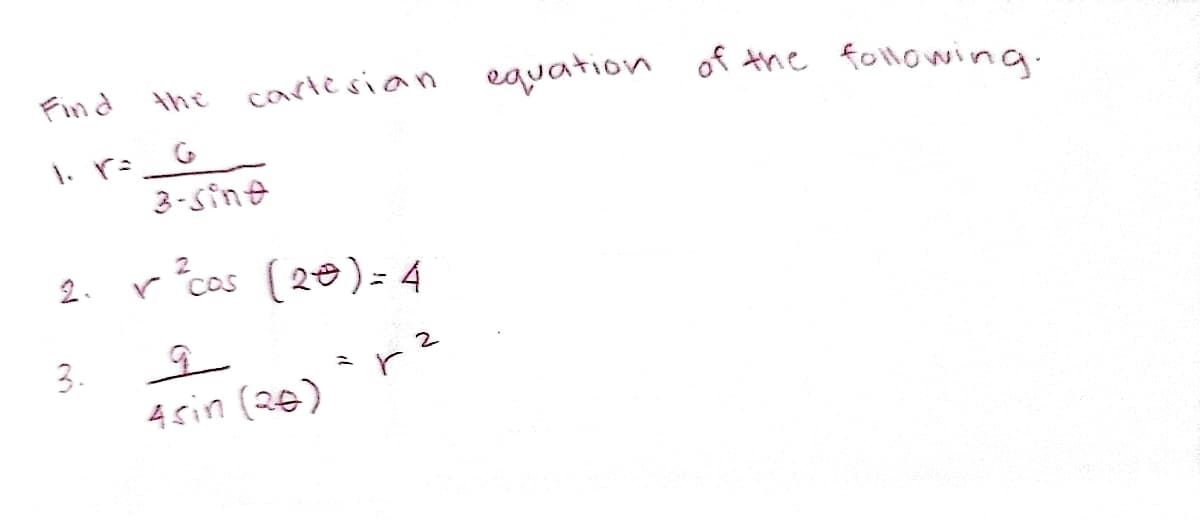 Find the cartesian equation of the following.
1. r = 6 / (3-sinθ)
2. r² cos (2θ) = 4
3. 9 / (4 sin (2θ)) = r²